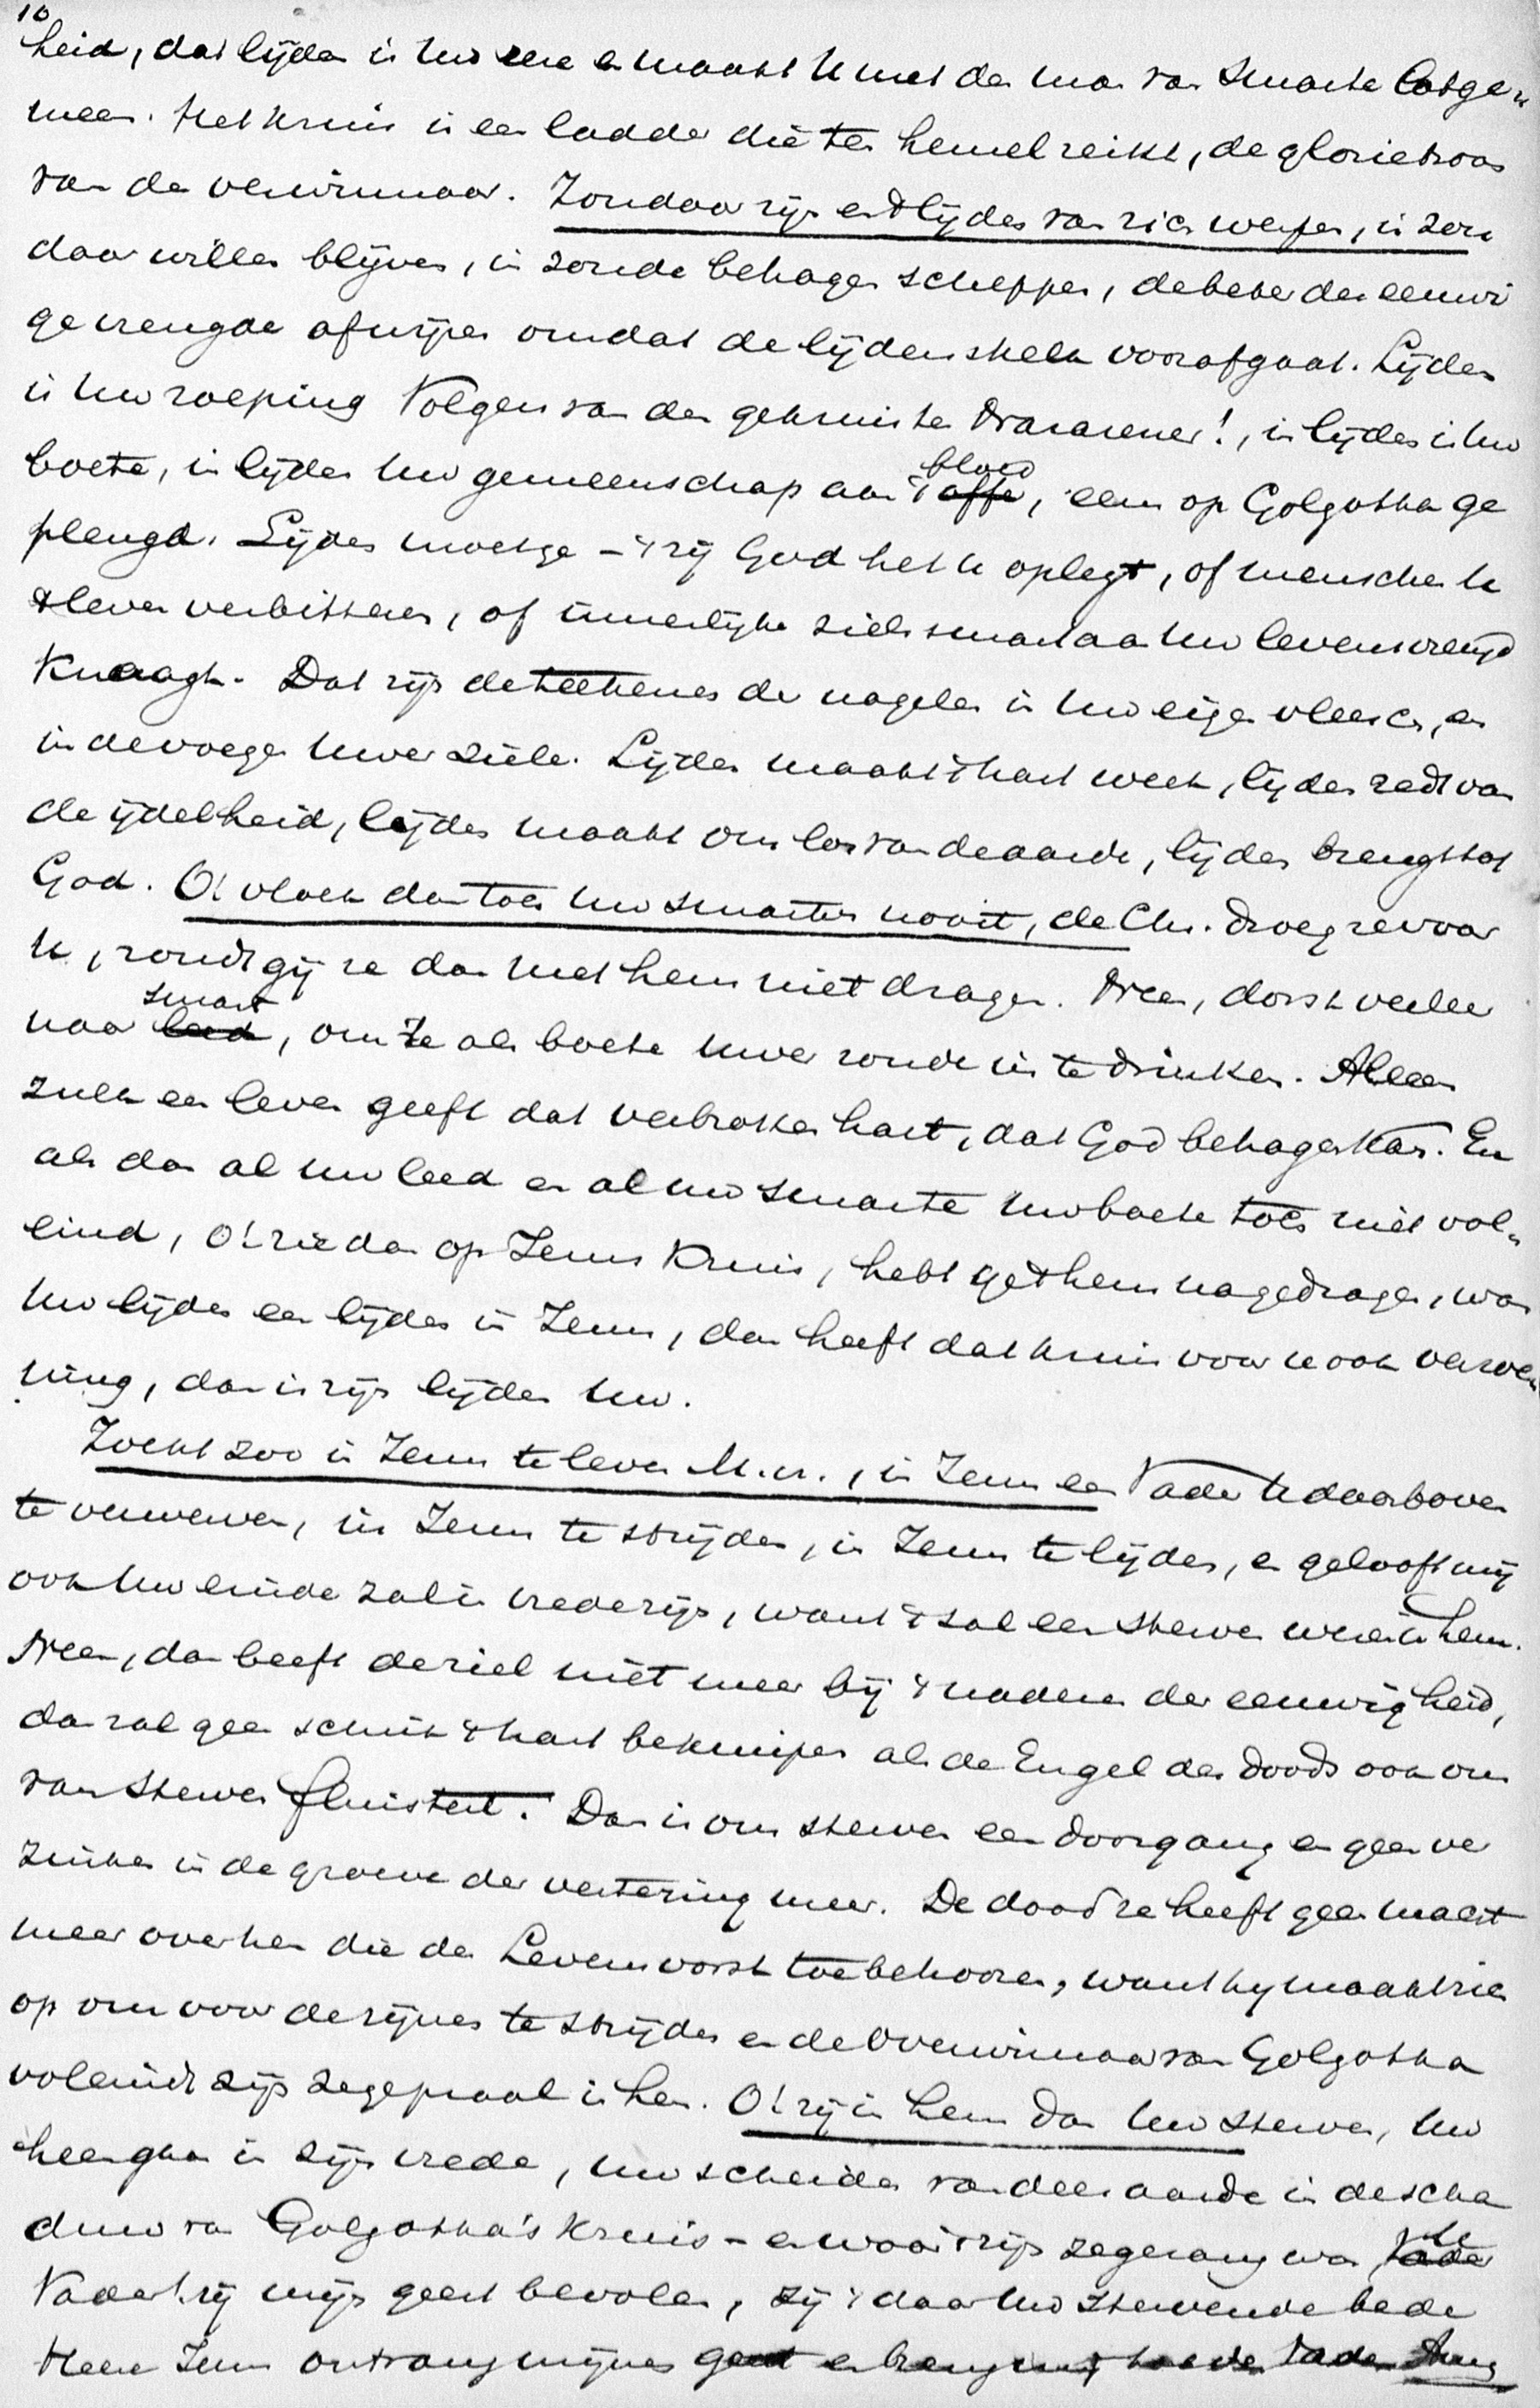 10
heid, dat lijden is Uw eere en maakt U met den man van Smarte lotge„
meen. Het kruis is een ladder die ten hemel reikt, de glorietroon
van den verwinnaar. Zondaar zijn en 't lijden van zich werpen, is zon
daar willen blijven, in zonde behagen scheppen, de beker der eeuwi
ge vreugde afwijzen omdat de lijdenskelk voorafgaat. Lijden
is Uw roeping Volgers van den gekruisten Nazarener!, in lijden is Uw
boete, in lijden Uw gemeenschap aan 't bloed, eens op Golgotha ge
plengd. Lijden moet ge – 't zij God het U oplegt, of menschen U
't leven verbitteren, of innerlijke zielssmart aan Uw levensvreugd
knaagt. Dat zijn de teekenen der nagelen in Uw eigen vleesch, en
in de voegen Uwer ziele. Lijden maakt 't hart week, lijden redt van
de ijdelheid, lijden maakt ons los van de aarde, lijden brengt tot
God. O! vloek dan toch Uw smarten nooit, de Chr. droeg ze voor
U, zoudt gij ze dan met hem niet dragen. Neen, dorst veeleer
naar smart, om ze als boete Uwer zonde in te drinken. Alleen
zulk een leven geeft dat verbroken hart, dat God behagen kan. En
als dan al Uw leed en al Uw smarte Uw boete toch niet vol„
eind, O! zie dan op Jezus Kruis, hebt ge 't hem nagedragen, was
Uw lijden een lijden in Jezus, dan heeft dat kruis voor U ook verzoe„
ning, dan is zijn lijden Uw.
Zoekt zoo in Jezus te leven M.H., in Jezus een Vader U daarboven
te verwerven, in Jezus te strijden, in Jezus te lijden, en gelooft mij
ook Uw einde zal in vrede zijn, want 't zal een sterven wezen in hem.
Neen, dan beeft de ziel niet meer bij 't naderen der eeuwigheid,
dan zal geen schrik 't hart beknijpen als de Engel des doods ook ons
van sterven fluistert. Dan is ons sterven een doorgang en geen ve
zinken in de groeve der vertering meer. De dood ze heeft geen macht
meer over hen die den Levensvorst toebehooren, want hij maakt zich
op om voor de zijnen te strijden en de Overwinnaar van Golgotha
voleindt zijn zegepraal in hen. O! zij in hem dan Uw sterven, Uw
heengaan in zijn vrede, Uw scheiden van deez aarde in de scha
duw van Golgotha's kruis – en waar zijn zegezang was U
Vader! zij mijn geest bevolen, zij 't daar Uw stervende bede
Heere Jezus ontvang mijnen geest en breng mij tot den Vader